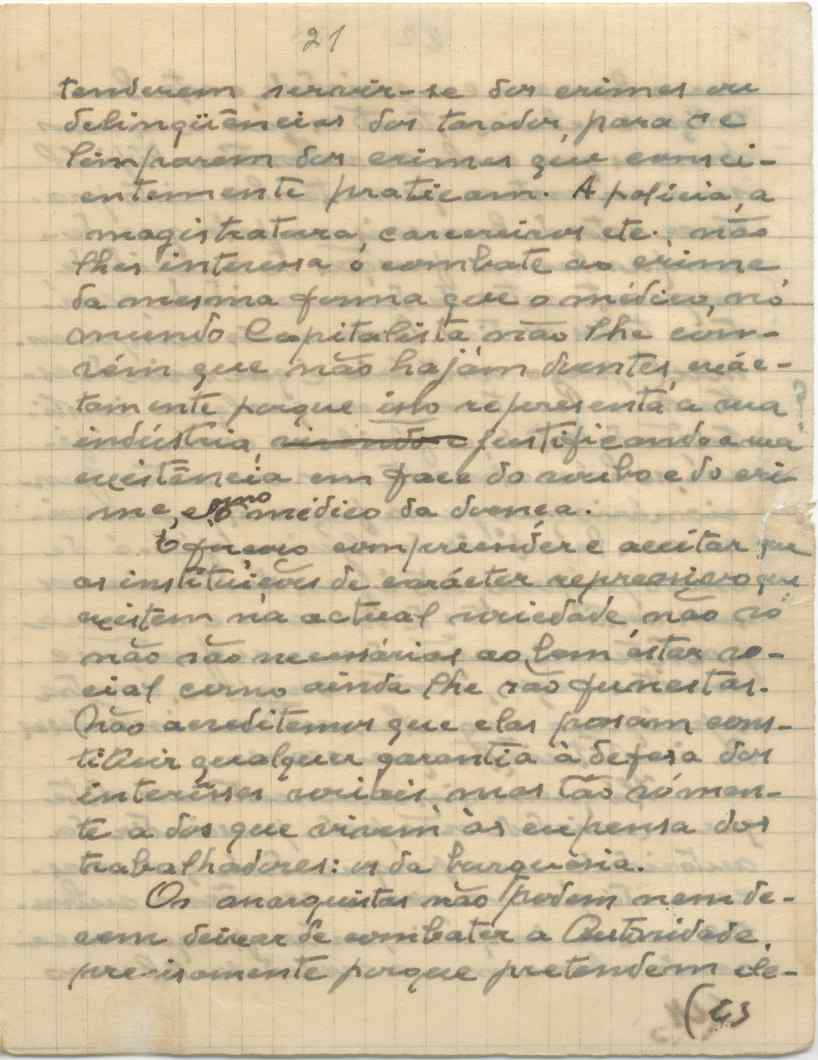 21
tenderem servir-se dos crimes ou
delinqüências dos tarados, para se
limparem dos crimes que consci-
entemente praticam. A polícia, a
magistratura, carcereiros etc., não
lhes interessa o combate ao crime
da mesma forma que o médico, no
mundo Capitalista não lhe con-
vém que não hajam doentes, exác-
tamente porque isso representa a sua
indústria, justificando a sua
existência em face do roubo e do cri-
me, e como médico da doença.
É forçoso compreender e aceitar que
as instituições de carácter repressivo que
existem na actual sociedade não só
não são necessárias ao bem estar so-
cial como ainda lhe são funestas.
Não acreditemos que elas possam cons-
tituir qualquer garantia à defesa dos
interêsses sociais, mas tão sómen-
te a dos que vivem às expensa dos
trabalhadores: os da burguesia.
Os anarquistas não podem nem de-
vem deixar de combater a Autoridade,
precisamente porque pretendem ele-